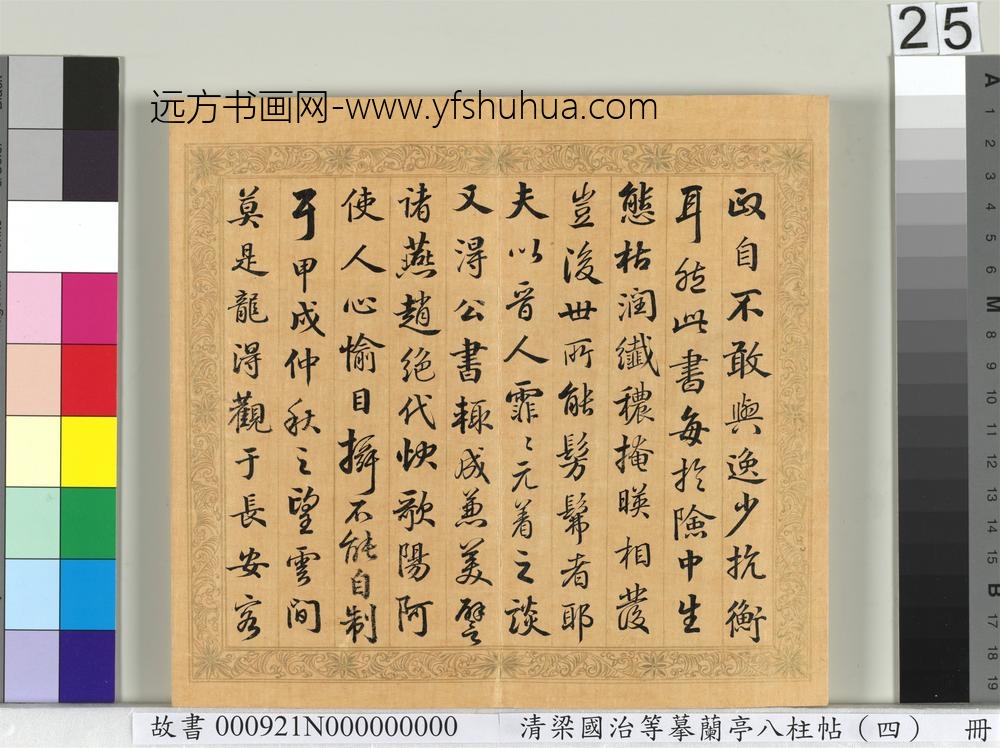 25
远方书画网-www.yfshuhua.com
政自不敢與逸少抗衡
耳然此書每於險中生
態枯润纖穠掩暎相發
豈後世所能髣髴者耶
夫以晋人霏〻元着之談
又得公書輒成兼美譬
诸燕趙绝代快歌陽阿
使人心愉目搖不能自制
于甲戌仲秋之望雲间
莫是龍得觀于長安客
故書 000921N000000000 清梁國治等摹蘭亭八柱帖（四） 冊
A 1 2 3 4 5 6 M 8 9 10 11 12 13 14 15 B 17 18 19